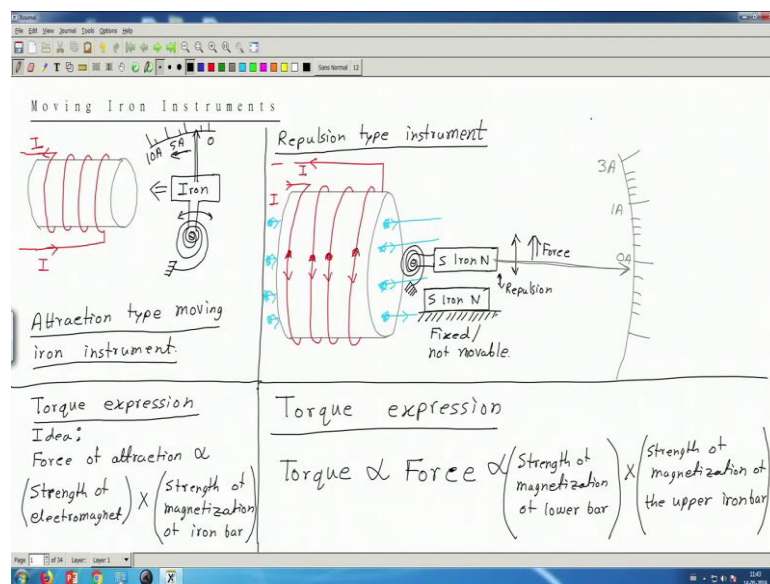 Xournal
File Edit View Journal Tools Options Help
Sans Normal 12
Moving Iron Instruments
I
10A 5A 0
Iron
I
Attraction type moving
iron instrument.
Repulsion type instrument
I
I
S Iron N
Force
Repulsion
S Iron N
Fixed/
not movable.
3A
1A
0A
Torque expression
Idea:
Force of attraction ∝
(Strength of electromagnet) X (Strength of magnetization of iron bar)
Torque expression
Torque ∝ Force ∝ (Strength of magnetization of lower bar) X (Strength of magnetization of the upper iron bar)
Page 1 of 34 Layer: Layer 1
11:43